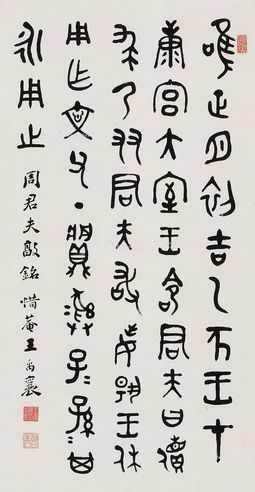 唯正月初吉乙亥王才
康宮大室王令君夫曰儥
求乃友君夫敢每揚王休
用乍文父丁彝子=孫=其
永用之
周君夫敦銘 惜菴王禹襄